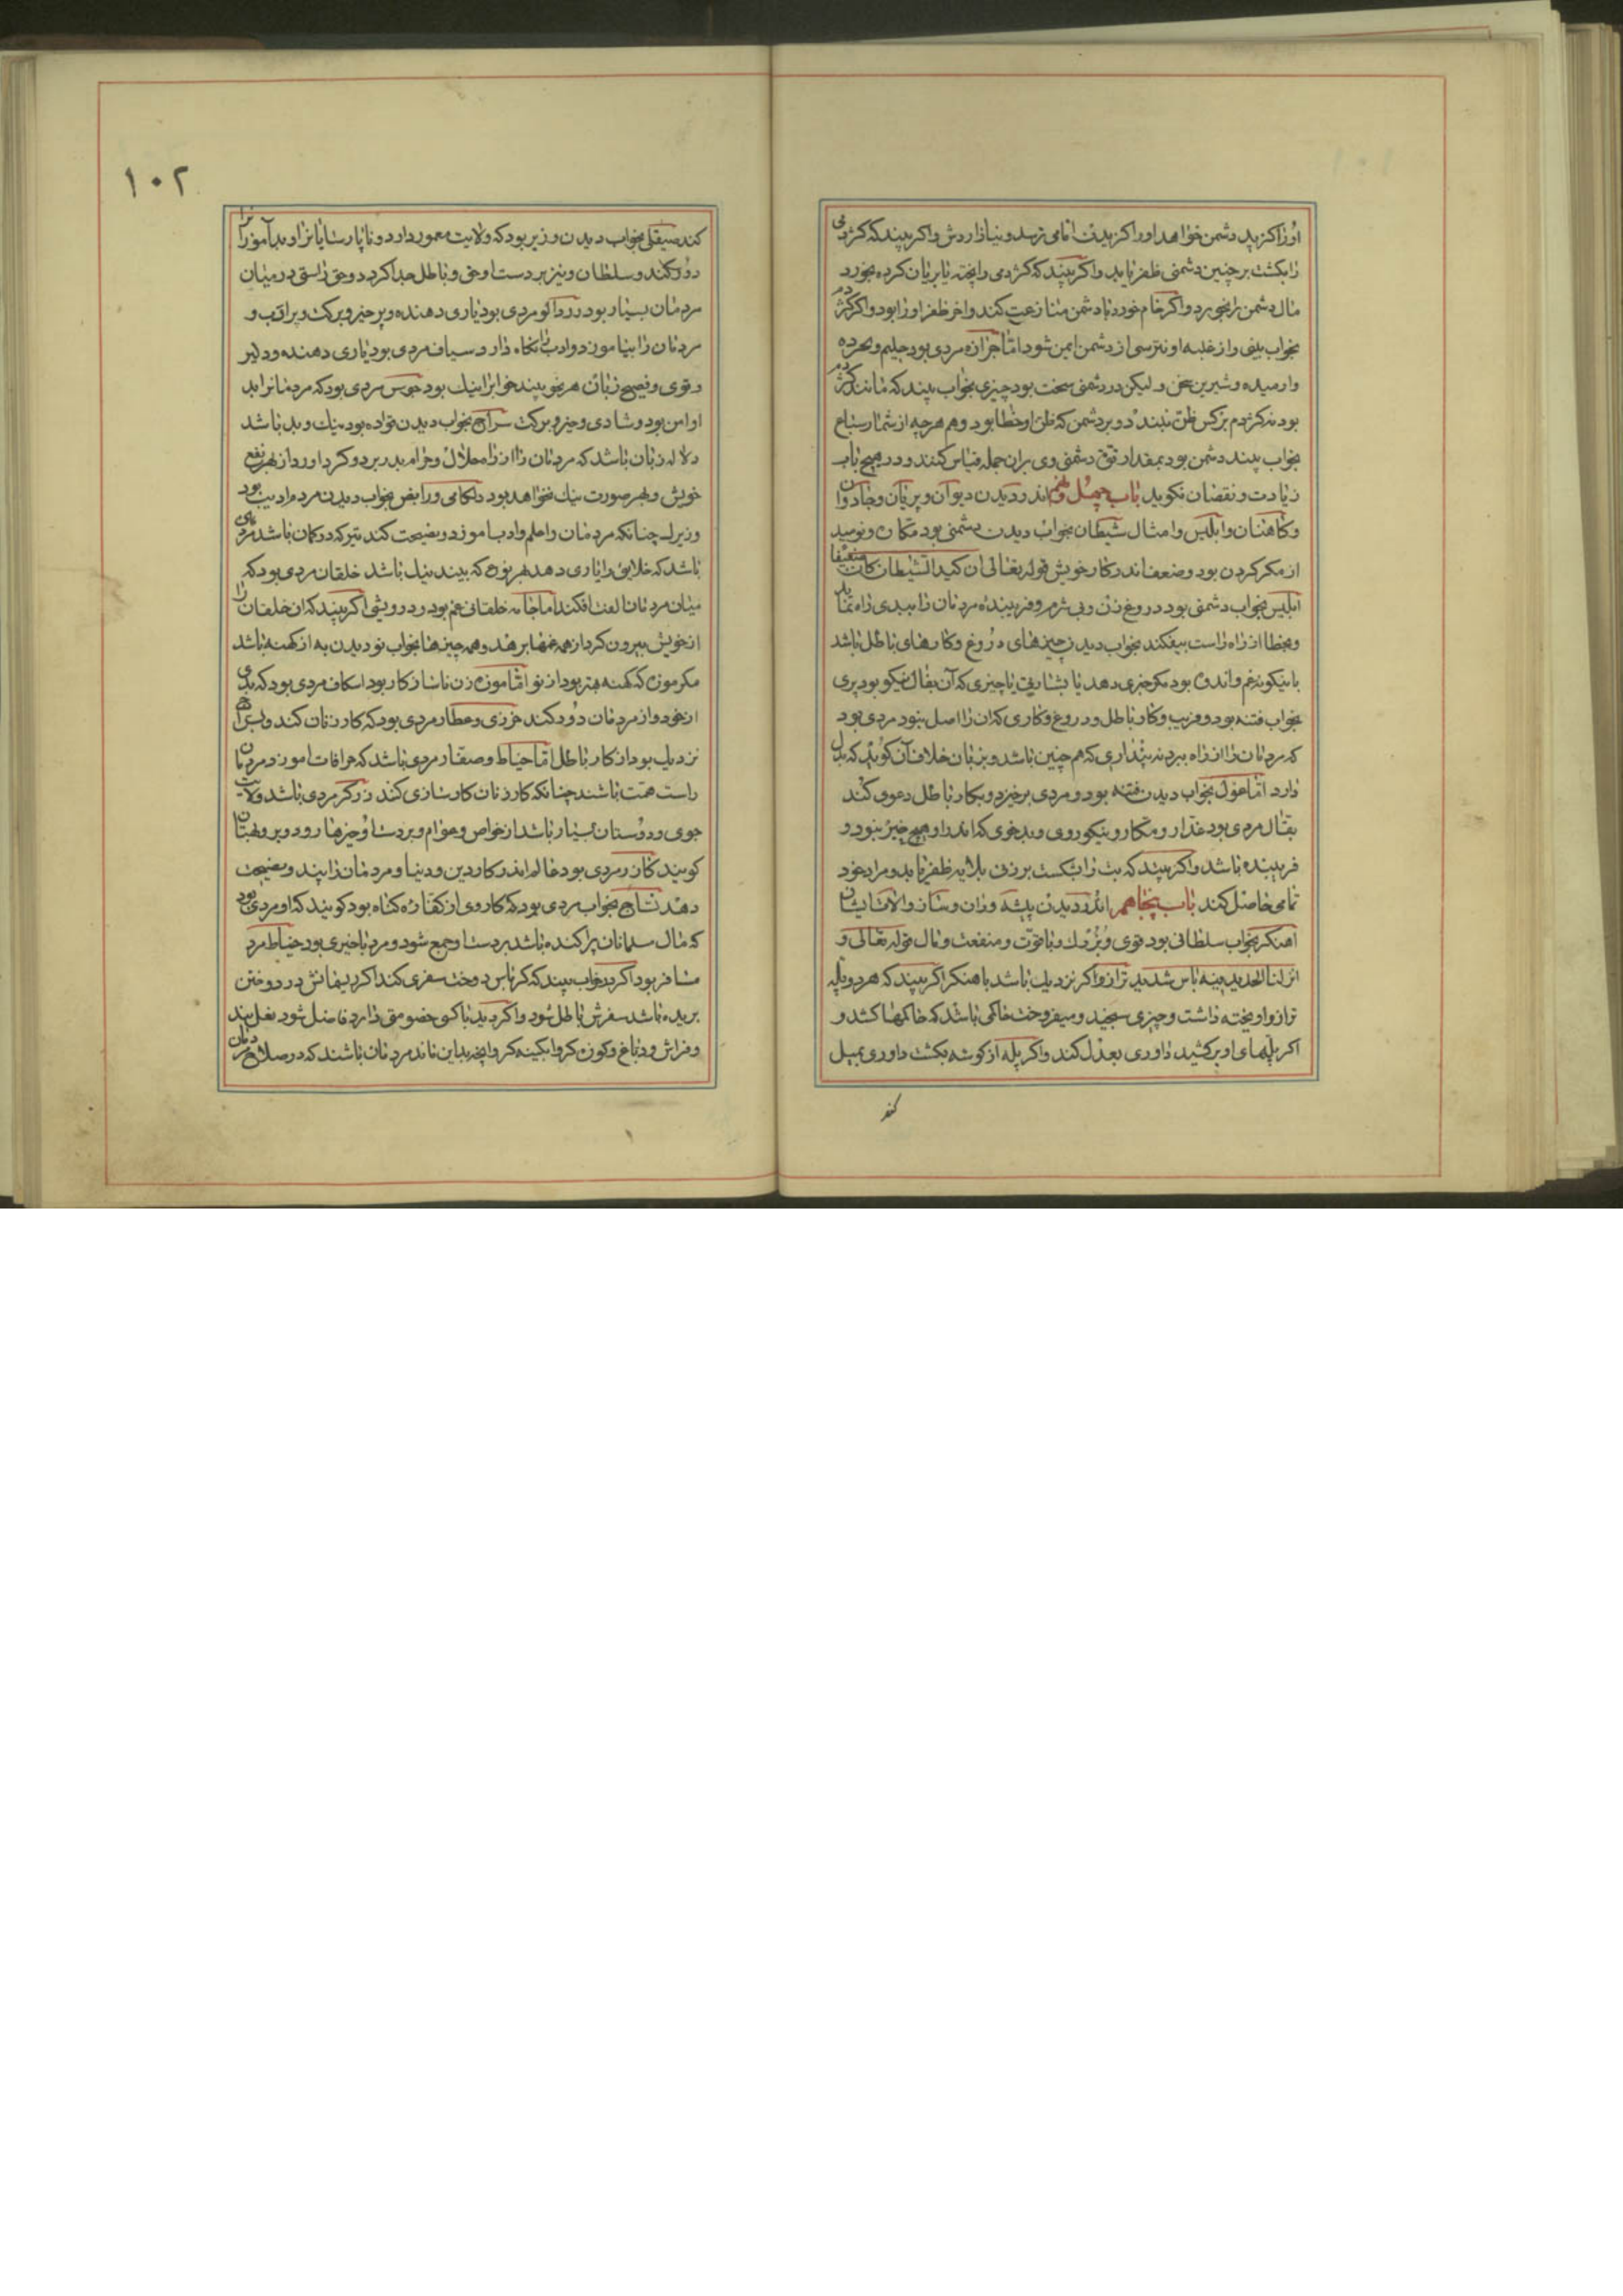 اورا کزید دشمن خواهد اورا کزیدن اما می ترسد و نیازاردش و اکر بیند که کژدمی
را بکشت بر چنین دشمنی ظفر یابد و اکر بیند که کژدمی را پخته یا بریان کرده بخورد
مال دشمن بخورد و اکر خام خورد با دشمن منازعت کند و اخر ظفر اورا بود و اکر کژدم
بخواب بینی و از غلبه او نترسی از دشمن ایمن شود اما جراره مردی بود حلیم و
وارمیده و شیرین سخن ولیکن در دشمنی سخت بود چیزی بخواب بیند که مانند کژدم
بود نه کژدم برکس ظن نبیند دو بر دشمن که ظن او خطا بود و هم هرچه از شمار سباع
بخواب بیند دشمن بود بمقدار قوت دشمنی وی بران جمله قیاس کنند و در هیچ باب
زیادت و نقصان نکوید باب چهل و نهم اندر دیدن دیوان و پریان و جادوان
و کاهنان و ابلیس و امثال شیطان بخواب دیدن دشمنی بود مکاره و نومید
از مکر کردن بود و ضعف اندر کار خویش قوله تعالی ان کید الشیطان کان ضعیفا
ابلیس بخواب دشمنی بود دروغ زن و بی شرم و فریبنده مردمان را ببدی راه نماید
و بخطا از راه راست بیفکند بخواب دیدن چیزهای دروغ و کارهای باطل باشد
یا نیکونه غم و اندوه بود مکر خبری دهد یا بشارتی یا چیزی که آن بفال نیکو بود پری
بخواب فتنه بود و فریب و کار باطل و دروغ و کاری که ان را اصل نبود مردی بود
که مردمان را از راه ببرد نه پنداری که هم چنین باشد و بزبان خلاف آن کوید که بدل
دارد اما غول بخواب دیدن فتنه بود و مردی برخیزد و بکار باطل دعوی کند
بقال مردی بود غدار و مکار و نیکوروی و بدخوی که اندر او هیچ خیر نبود و
فریبنده باشد و اکر بیند که بت را بشکست بر زنی بلایه ظفر یابد و مراد خود
تمامی حاصل کند باب پنجاهم اندر دیدن پیشه وران و ساز و الات ایشان
اهنکر بخواب سلطانی بود قوی و بزرک و با قوت و منفعت و مال قوله تعالی و
انزلنا الحدید فیه باس شدید ترازو اکر نزدیک باشد باهنکر اکر بیند که هر دو پله
ترازو اویخته داشت و چیزی سنجید و میفروخت حاکمی باشد که حاکمها کشد و
اکر پلهای او برکشید داوری بعدل کند و اکر پله از کوشه بکشت داوری بمیل
کند
١٠٢
کند صیقلی بخواب دیدن وزیر بود که ولایت معمور دارد و ناپارسایانرا و بدآموزانرا
دور کند و سلطان و نیز بر دست او حق و باطل جدا کردد و حق راستی در میان
مردمان بسیار بود دردا کو مردی بود یاری دهنده و پر خیر و برکت و براقب و
مردمان را بیاموزد و ادب نکاه دارد سیاف مردی بود یاری دهنده و دلیر
و قوی و فصیح زبان هر نحو بیند خوابرا نیک بود جوس مردی بود که مردمانرا بد
او امن بود و شادی و خیر و برکت سراج بخواب دیدن نواده بود نیک و بد باشد
دلاله زبان باشد که مردمان را از راه حلال و حرام بدر برد و کرد اورد از بهر نفع
خویش و بهر صورت نیک نخواهد بود دلکامی و رایض بخواب دیدن مردم ادیب بود
وزیرلـ چنانکه مردمان را علم و ادب اموزد و نصیحت کند تیرکه در کمان باشد مردی
باشد که خلایق را یاری دهد بهر نوع که بیند نیک باشد خلقان مردی بود که
میان مردمان الفت افکند اما جامه خلقانی غم بود و درویشی اکر بیند که ان خلقان را
از خویش بیرون کرد از همه غمها برهد و همه چیزها بخواب نو دیدن به از کهنه باشد
مکر موزه که کهنه بهتر بود از نو اما موزه زن ناساز کار بود اسکاف مردی بود که بدی
از خود و از مردمان دور کند خرزی و عطار مردی بود که کار زنان کند و بسراج
نزدیک بود از کار باطل اما خیاط و صفار مردی باشد که خرافات اموزد مردمان
راست همت باشند چنانکه کار زنان کارسازی کند زرکر مردی باشد ولایت
جوی و دوستان بسیار باشد از خواص و عوام و بر دست او خیزها رود و برو بهتان
کویند کازر مردی بود عالم اندر کار دین و دنیا و مردمان را پند و نصیحت
دهد نساج بخواب مردی بود که کار وی از کفاره کناه بود کویند که او مردی بود
که مال مسلمانان پراکنده باشد بر دست او جمع شود و مرد با خیری بود خیاط مرد
مسافر بود اکر در خواب بیند که کرباس دوخت سفری کند اکر ریمانش در دوختن
بریده باشد سفرش باطل شود و اکر دید با کسی خصومتی دارد فاضل شود نعل بند
و فراش و دباغ و کوزه کر و ابکینه کر و انچه بداین ماند مردمان باشند که در صلاح مردمان